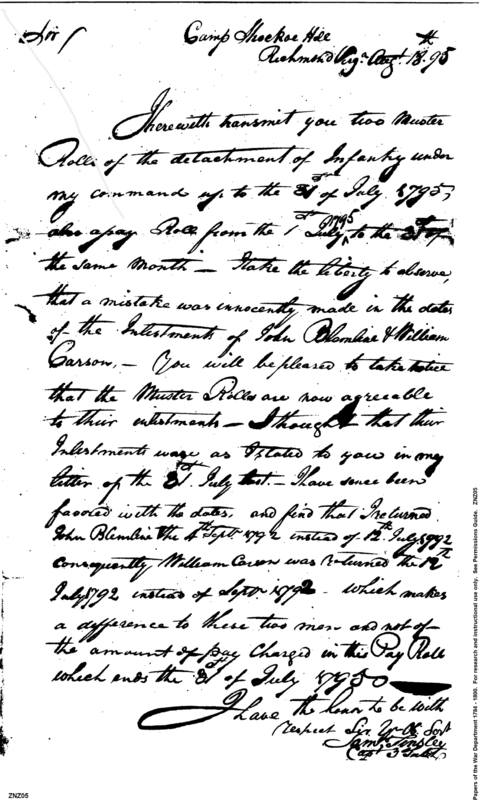 Sir
Camp Shockoe Hill
Richmond Virga. Augt. 18th 95
I herewith transmit you two Muster
Rolls of the detachment of Infantry under
my command up to the 31st of July 1795,
also a pay Roll from the 1st July 1795 to the 31st of
the same Month — I take the liberty to observe,
that a mistake was innocently made in the dates
of the Inlistments of John Blimline & William
Carson, — You will be pleased to take notice
that the Muster Rolls are now agreeable
to their inlistments — I thought that their
Inlistments ware as I stated to you in my
letter of the 31st July last. — I have since been
favored with the dates. and find that I returned
John Blimline the 4th Septr 1792 instead of 12th July 1792
consequently William Carson was returned the 12th
July 1792 instead of Septr 1792 — which makes
a difference to these two men and not of
the amount of pay charged in this Pay Roll
which ends the 31st of July 1795
I have the honor to be with
respect Sir Yr Ob Sevt
Saml. Tinsley
Capt 3d
ZNZ05
Papers of the War Department 1784 - 1800. For research and instructional use only. See Permissions Guide. ZNZ05